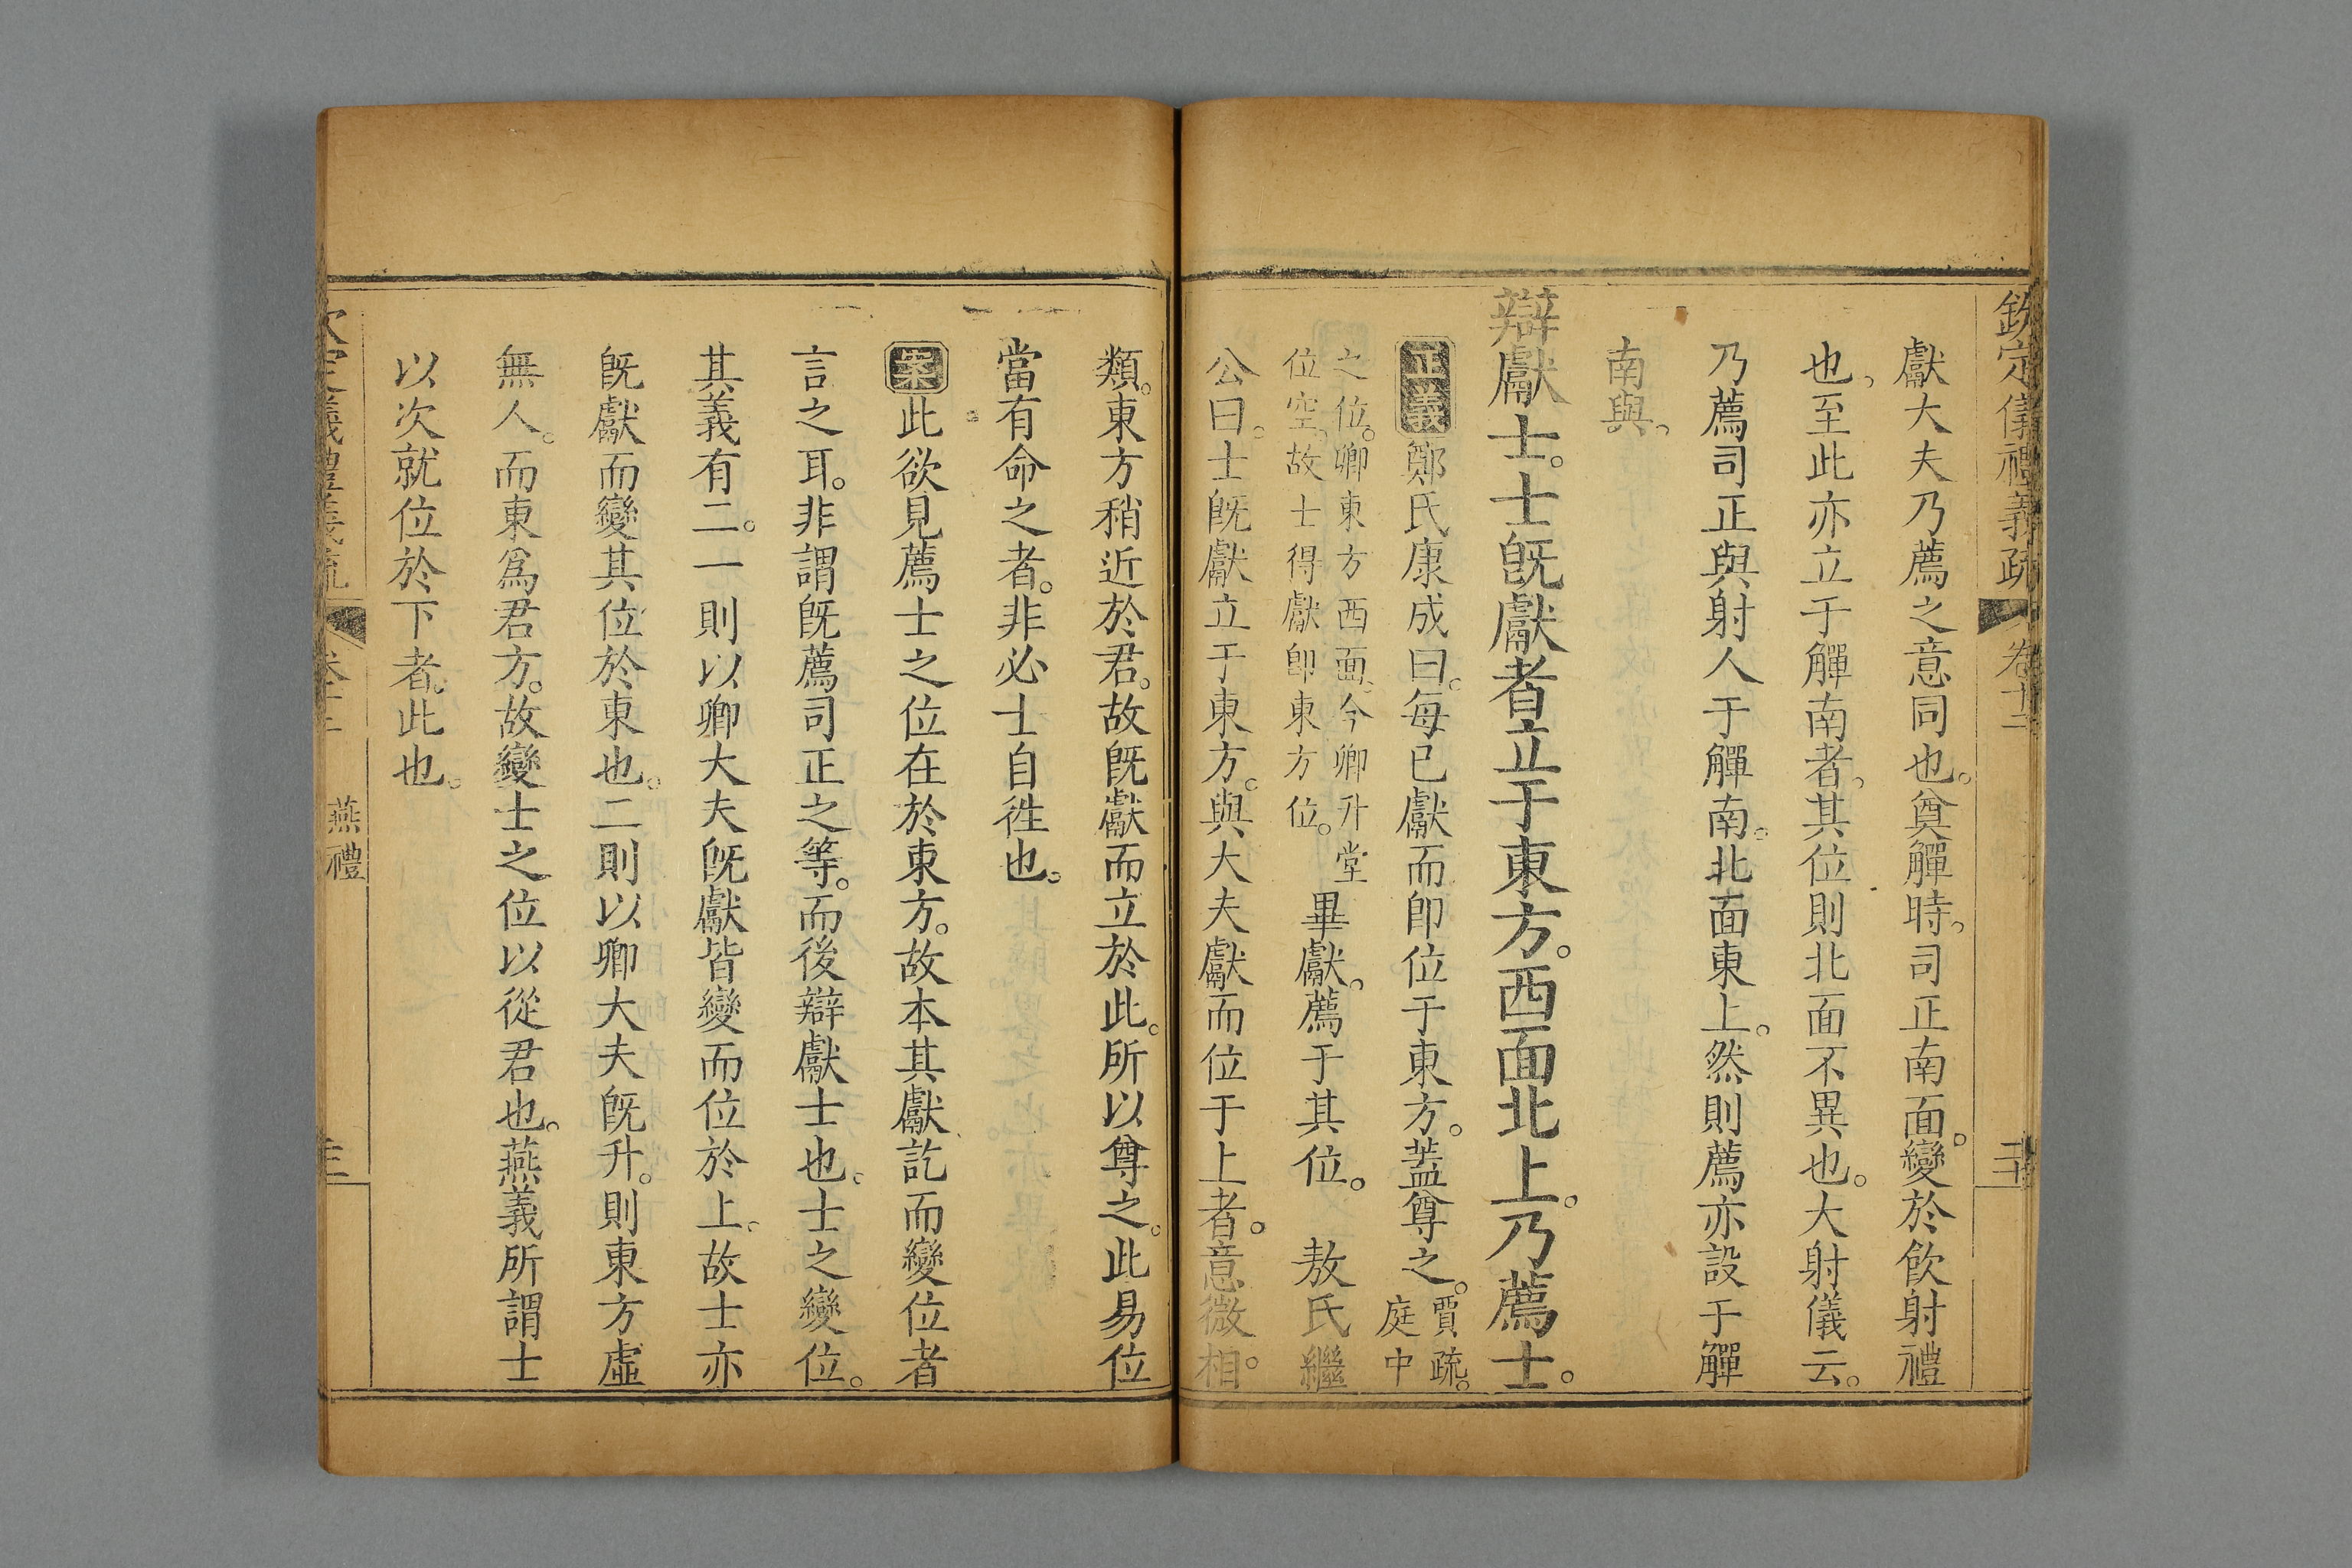 欽定儀禮義疏 卷十二 三十
獻大夫乃薦之意同也。奠觶時。司正南面。變於飲射禮
也。至此亦立于觶南者。其位則北面不異也。大射儀云。
乃薦司正與射人于觶南。北面東上。然則薦亦設于觶
南與。
辯獻士。士旣獻者立于東方。西面北上。乃薦士。
正義鄭氏康成曰。每已獻而卽位于東方。蓋尊之。賈疏。庭中
之位。卿東方西面。今卿升堂位空。故士得獻卽東方位。畢獻。薦于其位。 敖氏繼
公曰。士旣獻立于東方。與大夫獻而位于上者。意微相。
類。東方稍近於君。故旣獻而立於此。所以尊之。此易位
當有命之者。非必士自徃也。
案此欲見薦士之位在於東方。故本其獻訖而變位者
言之耳。非謂旣薦司正之等。而後辯獻士也。士之變位。
其義有二。一則以卿大夫旣獻皆變而位於上。故士亦
旣獻而變其位於東也。二則以卿大夫旣升。則東方虛
無人。而東爲君方。故變士之位以從君也。燕義所謂士
以次就位於下者。此也。
燕禮